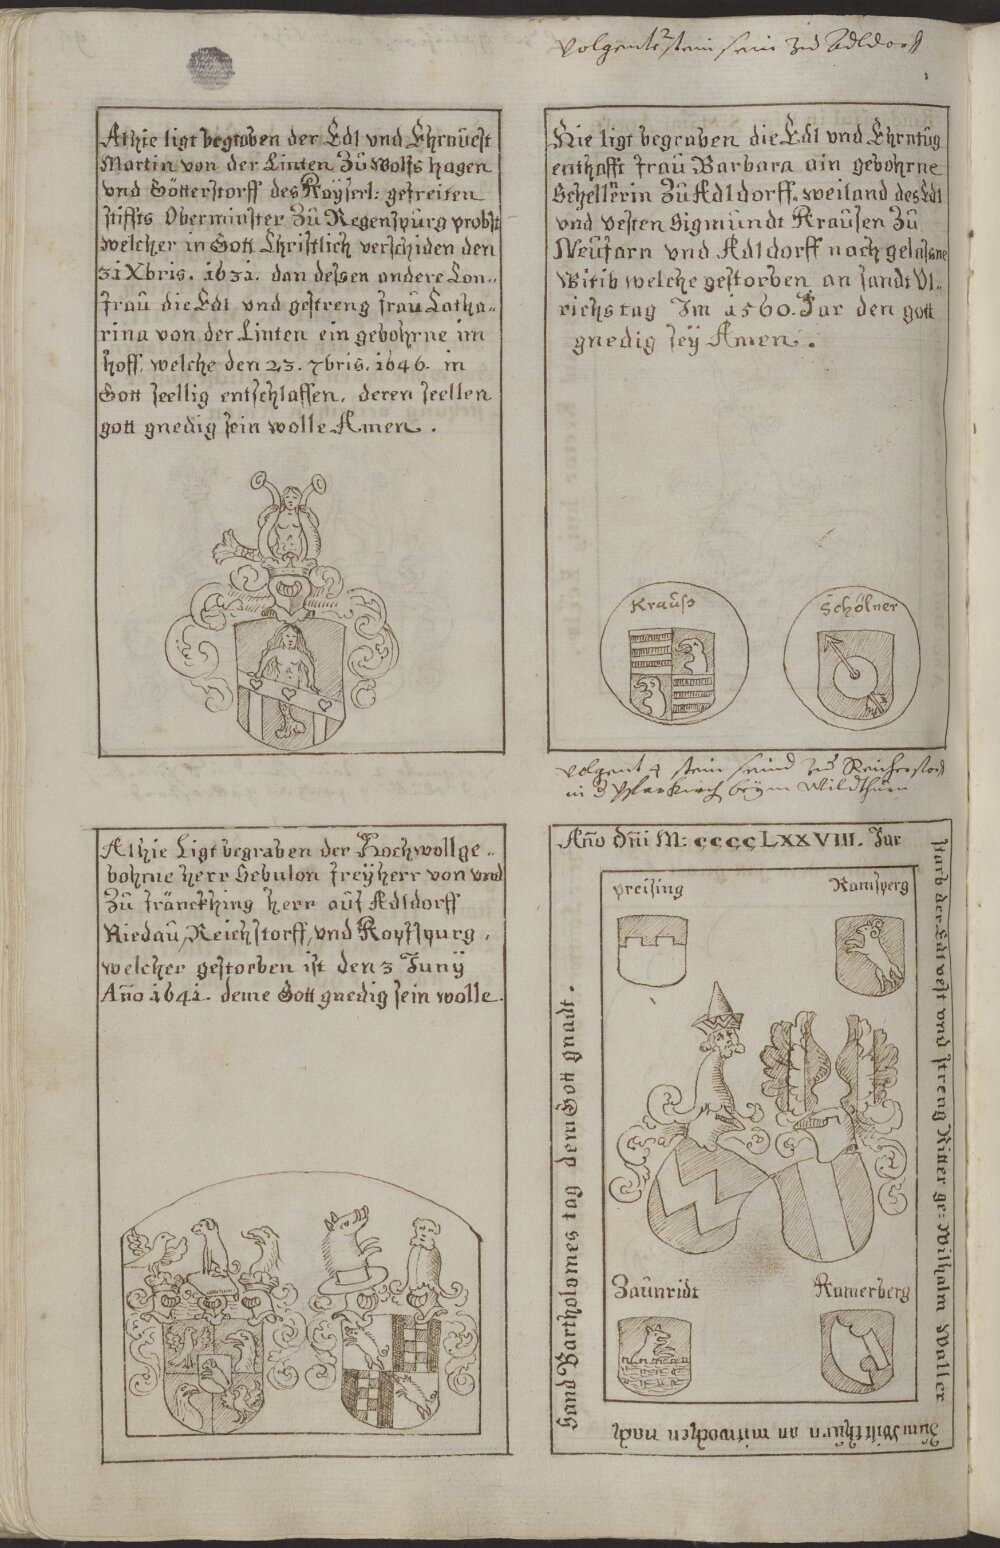 Volgente 2 stein sein zu Adldorf
Alhie ligt begraben der Edl vnd Ehrnuest
Martin von der Linten Zu Wolfs hagen
vnd Götterstorff des Kaÿserl: gefreiten
stiffts Obermünster Zu Regenspurg probst
welcher in Gott Christlich verschiden den
31 Xbris. 1631. dan dessen andere Con..
frau die Edl vnd gestreng frau Catha..
rina von der Linten ein gebohrne im
hoff, welche den 23. 7bris. 1646. in
Gott seellig entschlaffen, deren seellen
gott gnedig sein wolle Amen.
Hie ligt begraben die Edl vnd Ehrntug
enthafft frau Barbara ain gebohrne
Schellerin Zu Adldorff, weiland des Edl
vnd vesten Sigmundt Krausen Zu
Neufarn vnd Adldorff nach gelassne
Witib welche gestorben an sandt Vl..
richs tag Im 1560. Jar den gott
gnedig seÿ Amen.
Krauß
Schölner
Volgent 4 stein seind zu Reicherstorf
in der Pfarkirch beym Wildthurn
Alhie Ligt begraben der Hochwollge..
bohrne herr Sebulon freÿherr von vnd
Zu fränckhing herr auf Adldorff
Riedau, Reichstorff, vnd Royfspurg,
welcher gestorben ist den 3 Junÿ
Año 1641. deme Gott gnedig sein wolle.
Año dñi M: ccccLXXVIII. Jar
starb der Edl vest vnd streng Ritter ge: Wilhalm Waller
Zum Wiltthurn an mitwochen nach
Sand Bartholomes tag dem Gott gnadt.
preising
Ramsperg
Zaunridt
Ramerberg